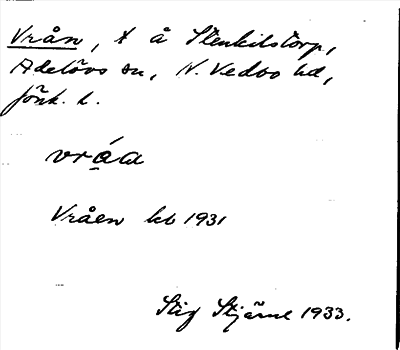 Vrån, t å Stenkilstorp,
Adelövs sn, N. Vedbo hd,
Jönk. l.
vrǻa
Vråen kb 1931
Stig Stjärne 1933.